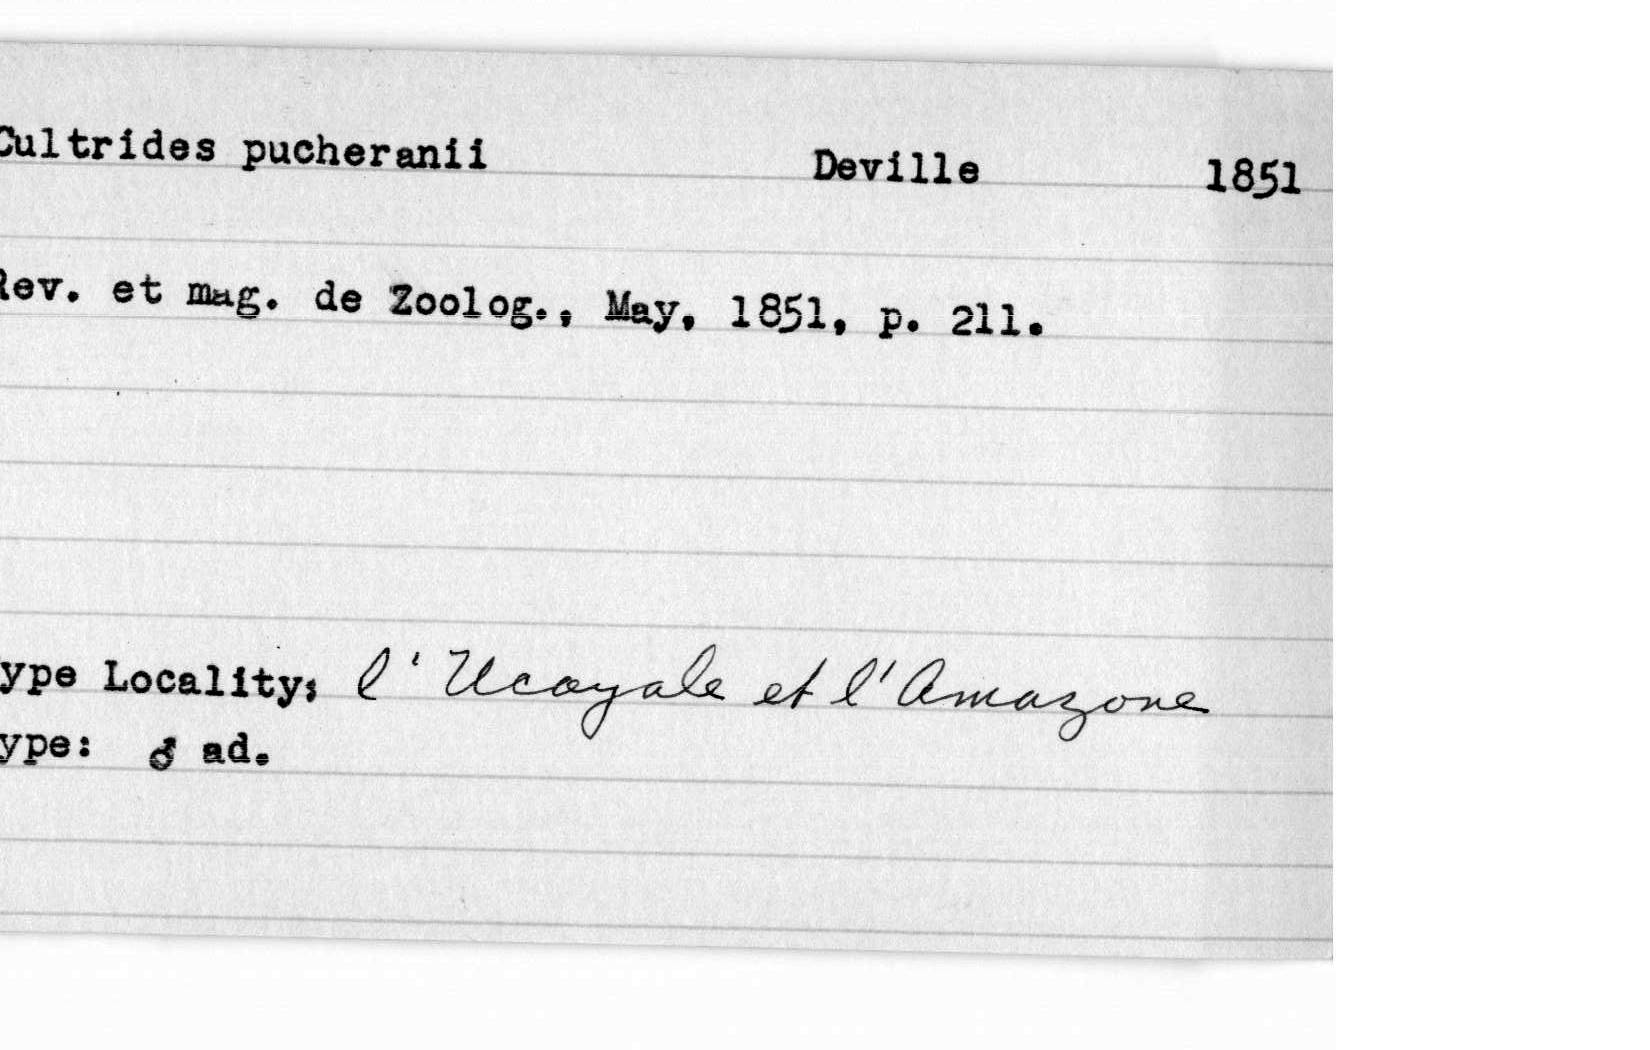 Cultrides pucheranii Deville 1851
Rev. et mag. de Zoolog., May, 1851, p. 211.
ype Locality: l'Ucayale et l'Amazone
ype: ♂ ad.